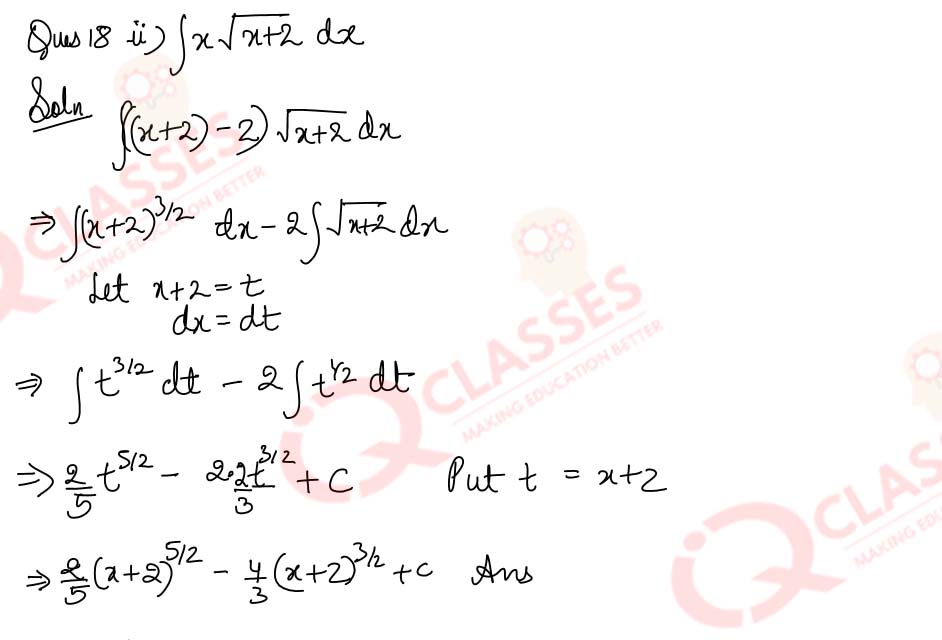 Ques 18 ii) ∫x√(x+2) dx
Soln
∫((x+2)-2) √(x+2) dx
⇒ ∫(x+2)^3/2 dx - 2∫√(x+2) dx
Let x+2 = t
dx = dt
⇒ ∫ t^3/2 dt - 2∫t^1/2 dt
⇒ 2/5 t^5/2 - 2·2t^3/2/3 + C Put t = x+2
⇒ 2/5 (x+2)^5/2 - 4/3 (x+2)^3/2 + C Ans
CLASSES
MAKING EDUCATION BETTER
IQ CLASSES
MAKING EDUCATION BETTER
IQ CLASSES
MAKING EDUCATION